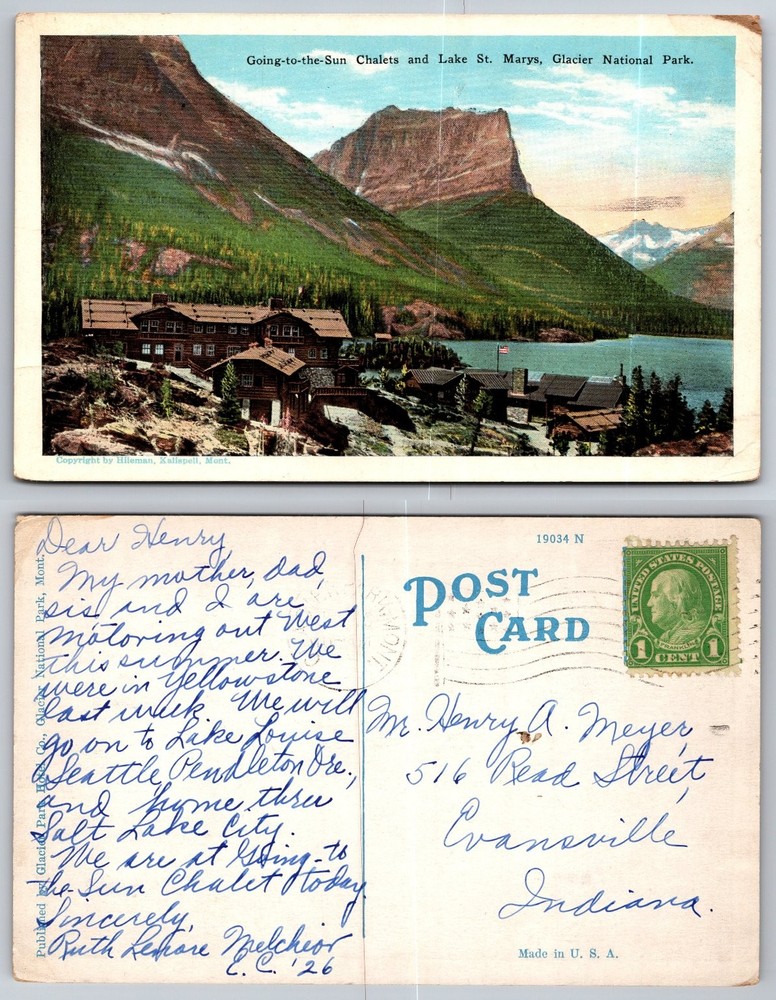 Going-to-the-Sun Chalets and Lake St. Marys, Glacier National Park.
Copyright by Hileman, Kalispell, Mont.
Dear Henry,
My mother, dad,
sis and I are
motoring out West
this summer. We
were in Yellowstone
last week. We will
go on to Lake Louise
Seattle, Pendleton Ore.,
and home thru
Salt Lake City.
We are at Going-to
the-Sun Chalet today.
Sincerely,
Ruth Melchior
E. C. '26
Published by Glacier Park Hotel Co., Glacier National Park, Mont.
19034 N
POST
CARD
UNITED STATES POSTAGE
FRANKLIN
1 1
CENT
Mr. Henry A. Meyer,
516 Read Street,
Evansville
Indiana.
Made in U. S. A.